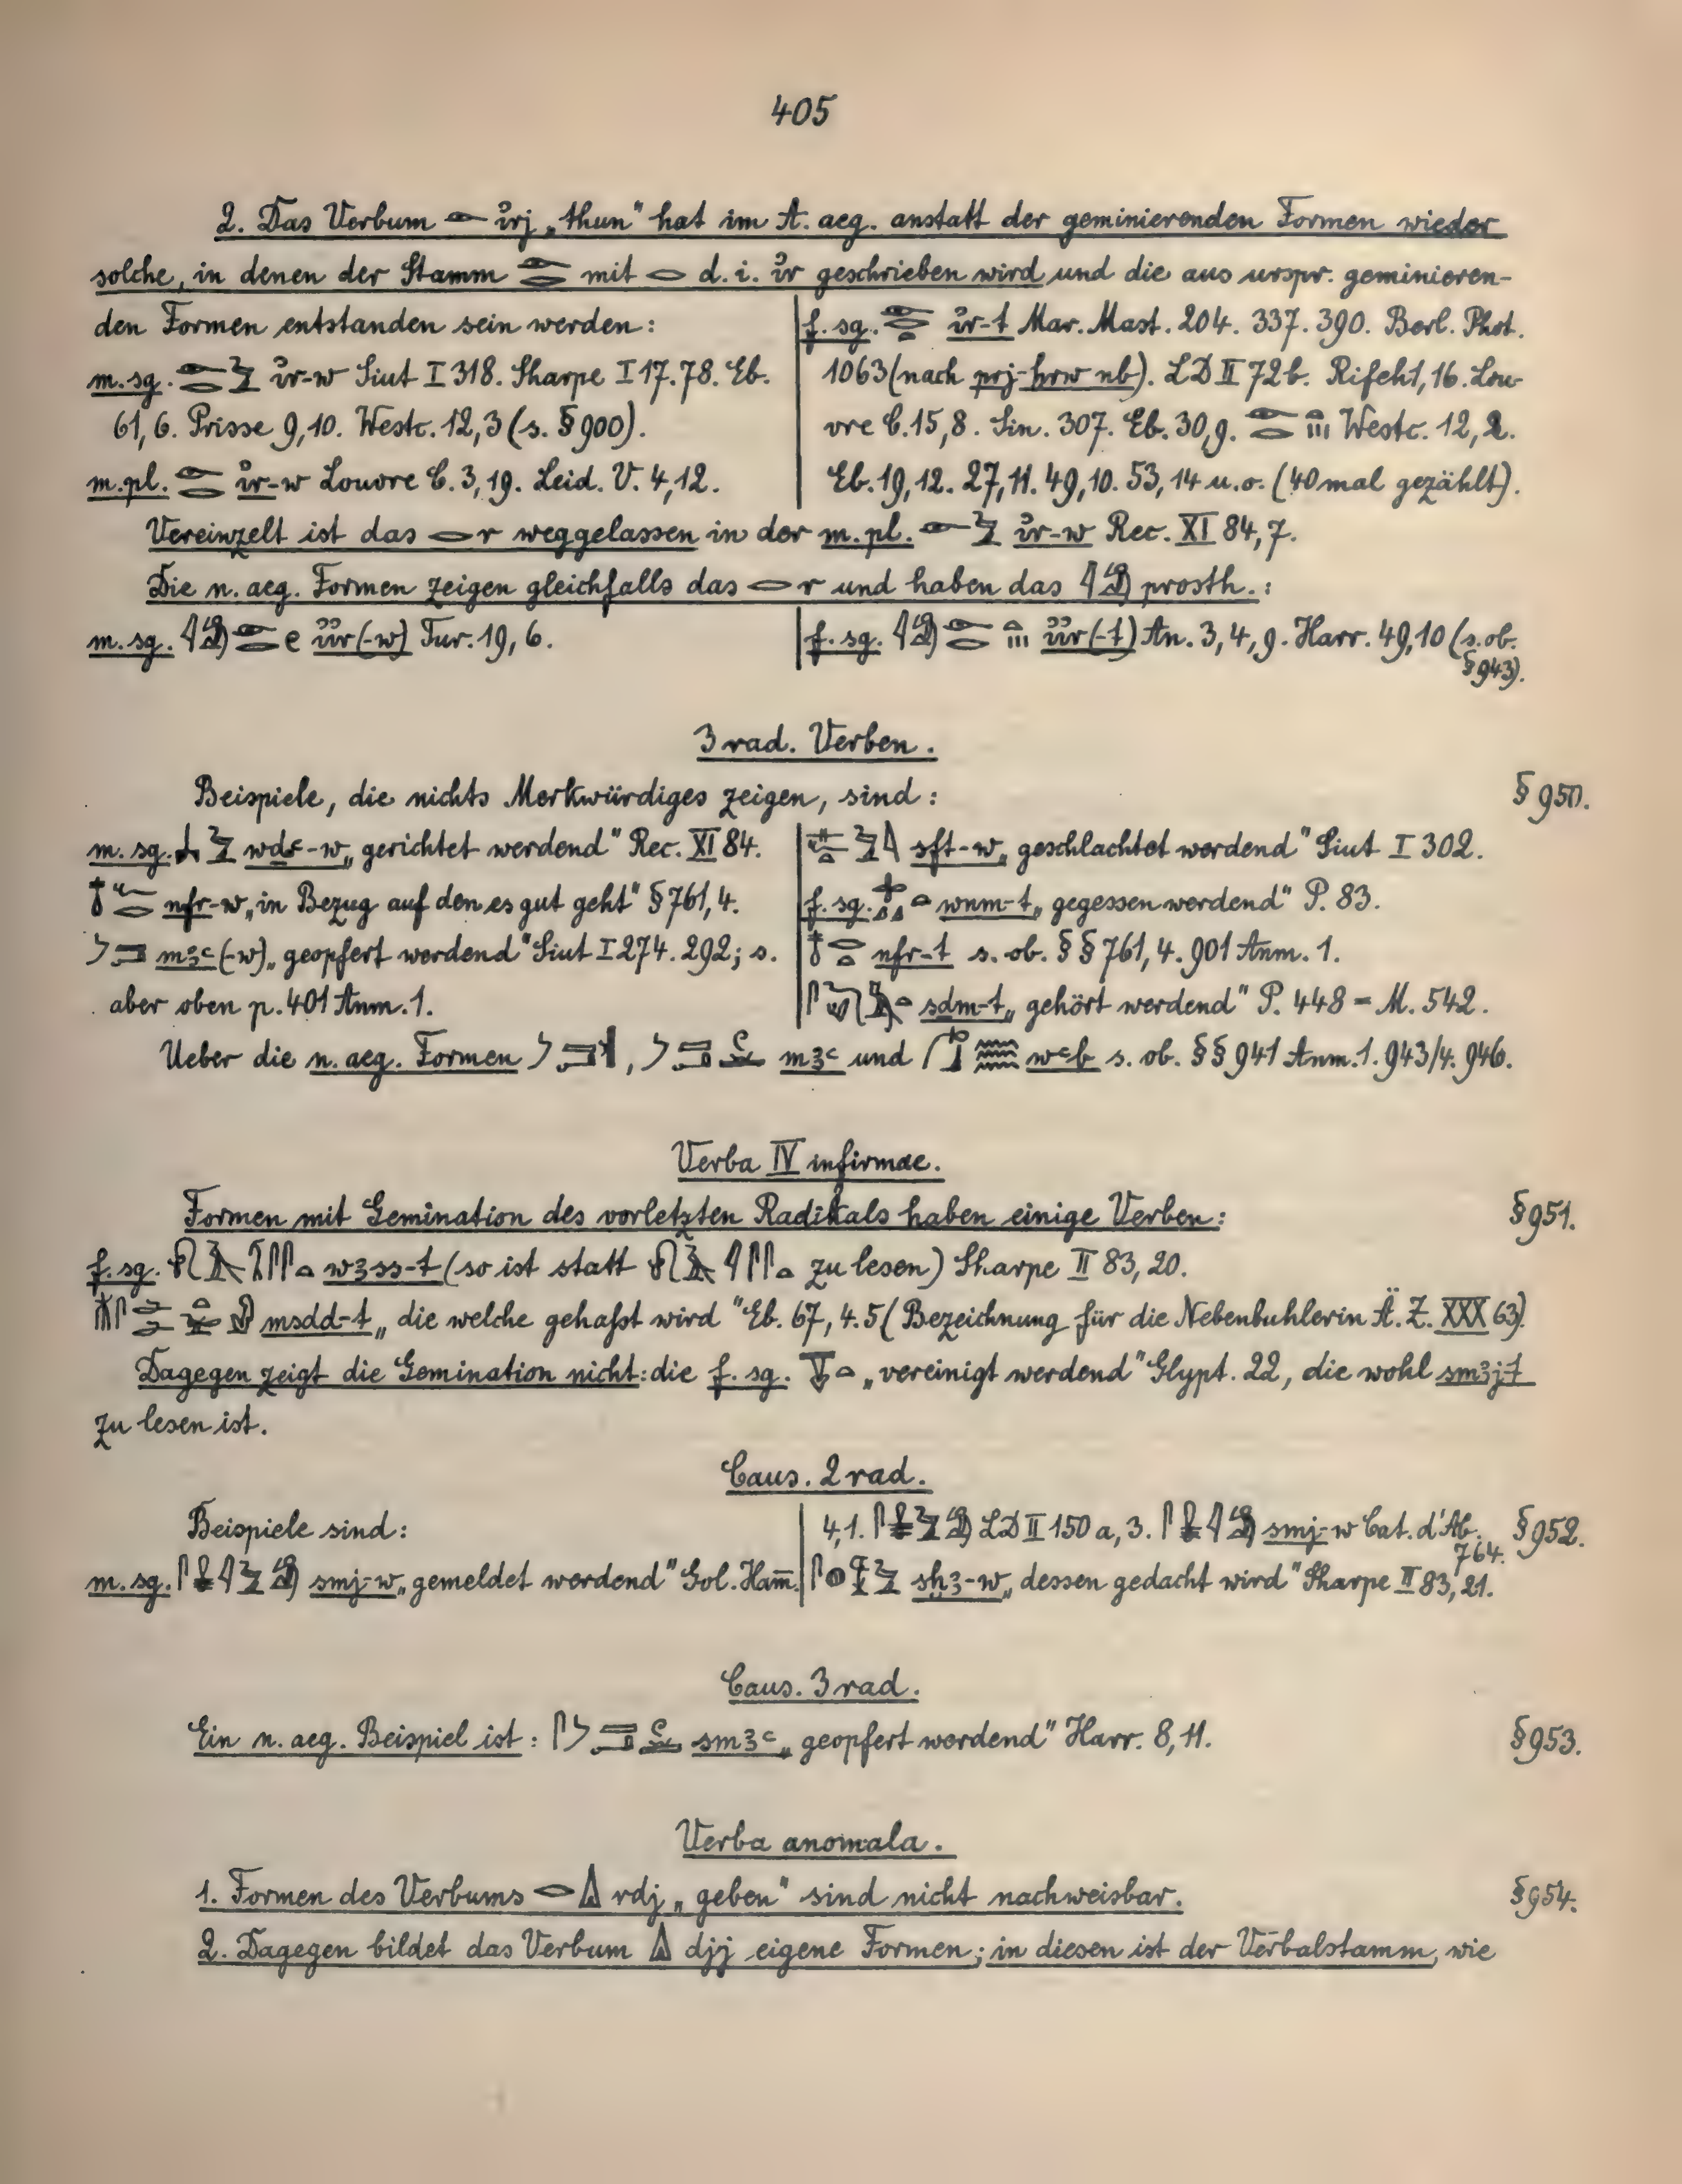 405
2. Das Verbum 𓁹 ı͗rj „thun“ hat im A. aeg. anstatt der geminierenden Formen wieder
solche, in denen der Stamm 𓁹𓂋 mit 𓂋 d. i. ı͗r geschrieben wird und die aus urspr. geminieren-
den Formen entstanden sein werden:
m. sg. 𓁹𓂋𓅱 ı͗r-w Siut I 318. Sharpe I 17. 78. Eb.
61, 6. Prisse 9, 10. Westc. 12, 3 (s. § 900).
m. pl. 𓁹𓂋 ı͗r-w Louvre C. 3, 19. Leid. V. 4, 12.
f. sg. 𓁹𓂋𓏏 ı͗r-t Mar. Mast. 204. 337. 390. Berl. Phot.
1063 (nach prj-ḫrw nb). LD II 72 b. Rifeh 1, 16. Lou-
vre C. 15, 8. Sin. 307. Eb. 30, 9. 𓁹𓂋𓏏𓏥 Westc. 12, 2.
Eb. 19, 12. 27, 11. 49, 10. 53, 14 u. o. (40 mal gezählt).
Vereinzelt ist das 𓂋 r weggelassen in der m. pl. 𓁹𓅱 ı͗r-w Rec. XI 84, 7.
Die n. aeg. Formen zeigen gleichfalls das 𓂋 r und haben das 𓇋𓀁 prosth.:
m. sg. 𓇋𓀁𓁹𓂋𓏲 ı͗ı͗r(-w) Tur. 19, 6.
f. sg. 𓇋𓀁𓁹𓂋𓏏𓏥 ı͗ı͗r(-t) An. 3, 4, 9. Harr. 49, 10 (s. ob.
§ 943).
3 rad. Verben.
Beispiele, die nichts Merkwürdiges zeigen, sind: § 950.
m. sg. 𓅱 wḏꜥ-w „gerichtet werdend“ Rec. XI 84.
𓄤𓆑𓂋 nfr-w „in Bezug auf den es gut geht“ § 761, 4.
mꜣꜥ(-w) „geopfert werdend“ Siut I 274. 292; s.
aber oben p. 401 Anm. 1.
𓅱 sft-w „geschlachtet werdend“ Siut I 302.
f. sg. 𓏏 wnm-t „gegessen werdend“ P. 83.
𓄤𓂋𓏏 nfr-t s. ob. §§ 761, 4. 901 Anm. 1.
𓋴𓄔𓅓𓏏 sḏm-t „gehört werdend“ P. 448 = M. 542.
Ueber die n. aeg. Formen , mꜣꜥ und wꜥb s. ob. §§ 941 Anm. 1. 943/4. 946.
Verba IV infirmae.
Formen mit Gemination des vorletzten Radikals haben einige Verben: § 951.
f. sg. wꜣss-t (so ist statt zu lesen) Sharpe II 83, 20.
msdd-t „die welche gehaßt wird“ Eb. 67, 4. 5 (Bezeichnung für die Nebenbuhlerin Ä. Z. XXX 63).
Dagegen zeigt die Gemination nicht: die f. sg. 𓏏 „vereinigt werdend“ Glypt. 22, die wohl smꜣj-t
zu lesen ist.
Caus. 2 rad.
Beispiele sind:
m. sg. 𓋴𓇋𓅱𓀁 smj-w „gemeldet werdend“ Gol. Ham̄.
4, 1. 𓋴𓅱𓀁 LD II 150 a, 3. 𓋴𓇋𓀁 smj-w Cat. d'Ab. § 952.
764.
𓋴𓐍𓅱 sḫꜣ-w „dessen gedacht wird“ Sharpe II 83, 21.
Caus. 3 rad.
Ein n. aeg. Beispiel ist: smꜣꜥ „geopfert werdend“ Harr. 8, 11. § 953.
Verba anomala.
1. Formen des Verbums 𓂋𓏙 rdj „geben“ sind nicht nachweisbar. § 954.
2. Dagegen bildet das Verbum 𓏙 djj eigene Formen; in diesen ist der Verbalstamm, wie